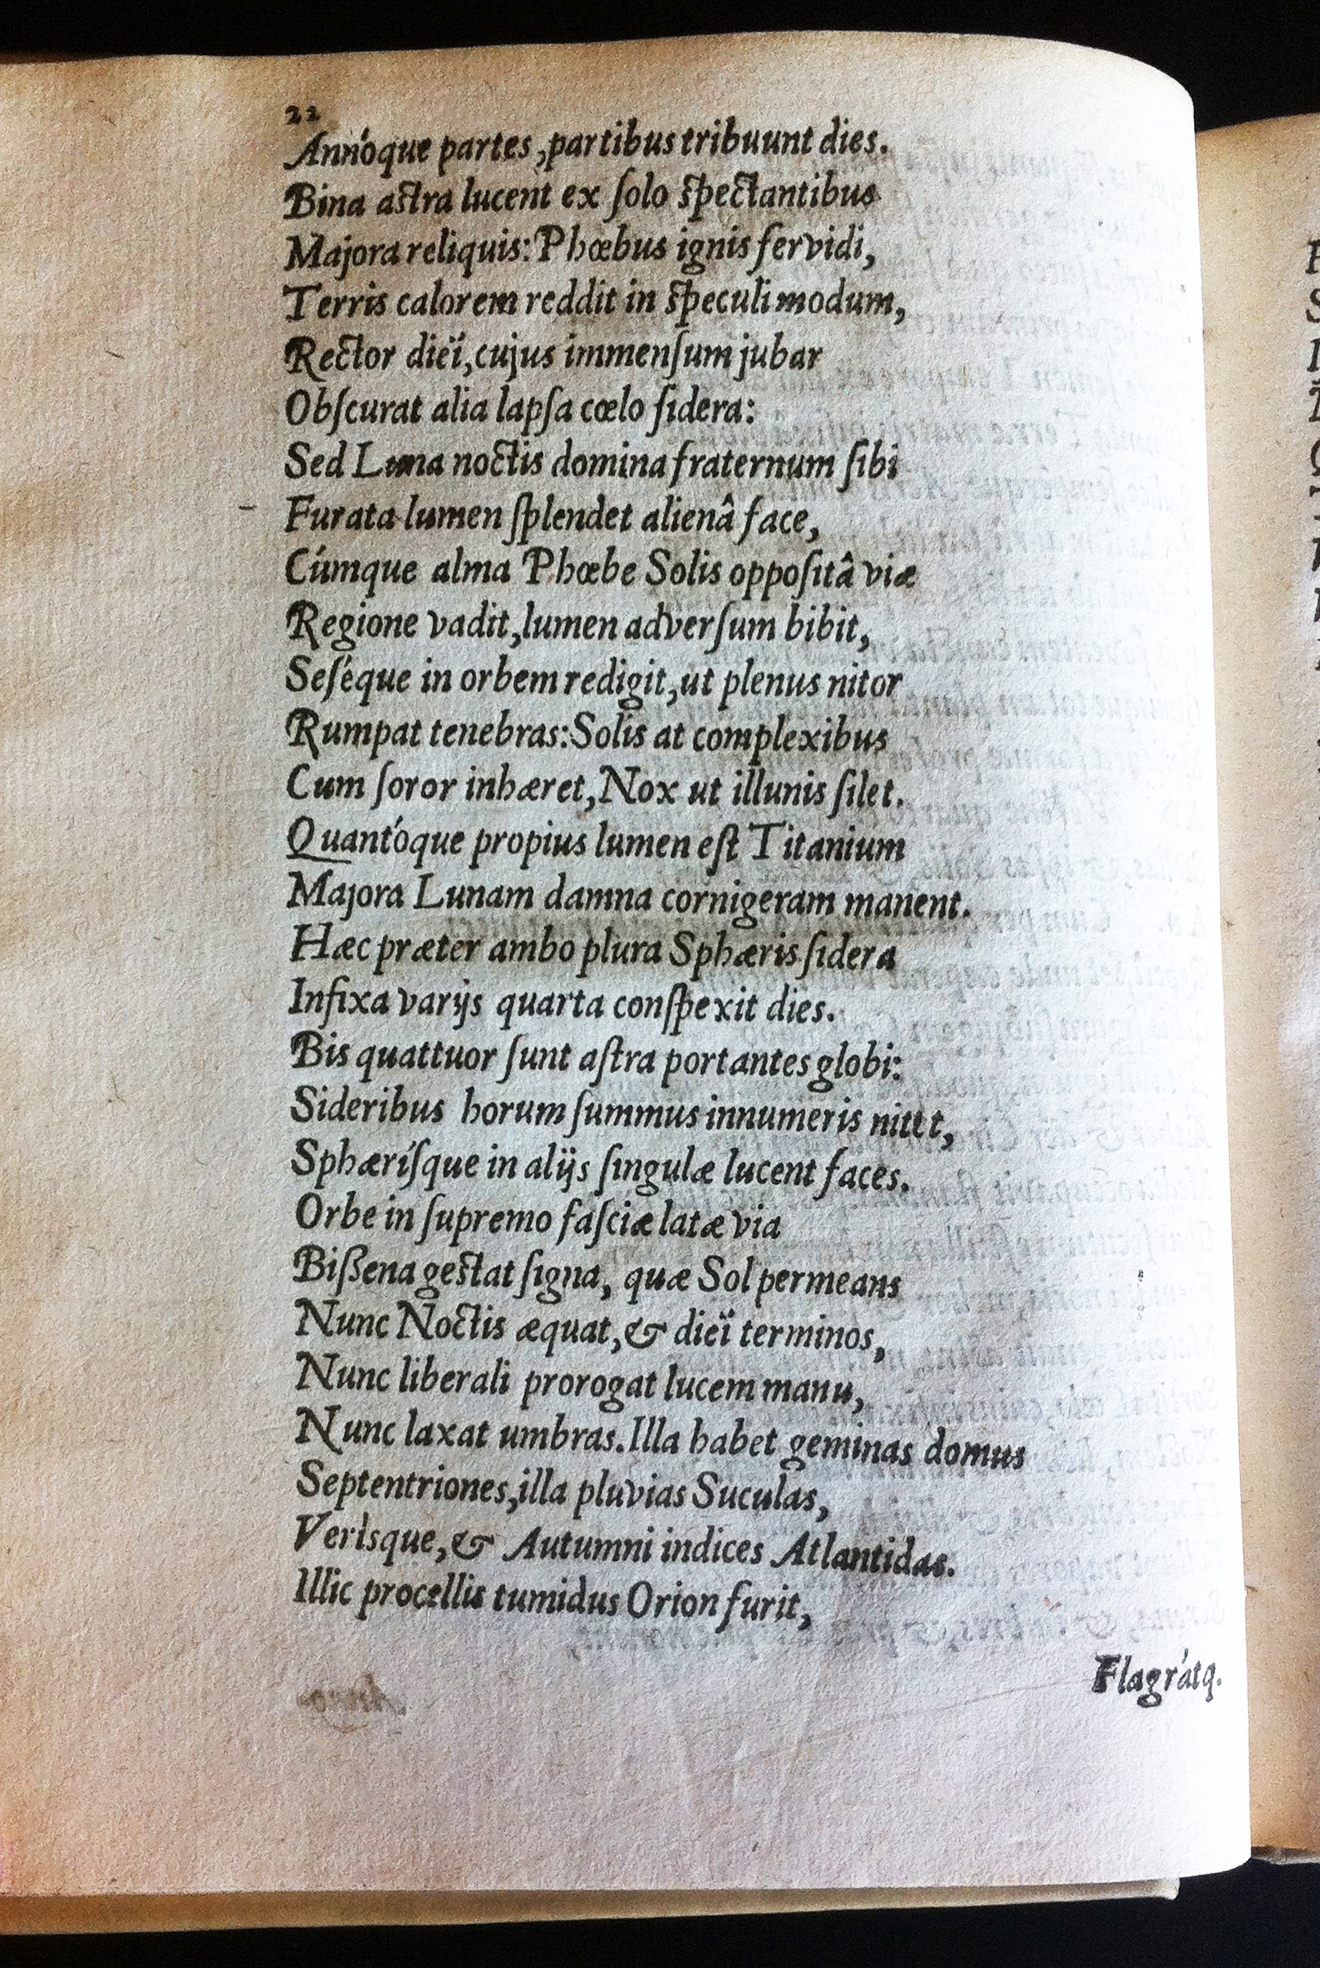 22
Annóque partes, partibus tribuunt dies.
Bina astra lucent ex ſolo ſpectantibus
Majora reliquis: Phœbus ignis fervidi,
Terris calorem reddit in ſpeculi modum,
Rector dieï, cujus immenſum jubar
Obſcurat alia lapſa cœlo ſidera:
Sed Luna noctis domina fraternum ſibi
Furata lumen ſplendet alienâ face,
Cúmque alma Phœbe Solis oppoſitâ viæ
Regione vadit, lumen adverſum bibit,
Seſéque in orbem redigit, ut plenus nitor
Rumpat tenebras: Solis at complexibus
Cum ſoror inhæret, Nox ut illunis ſilet.
Quantóque propius lumen eſt Titanium
Majora Lunam damna cornigeram manent.
Hæc præter ambo plura Sphæris ſidera
Infixa varijs quarta conſpexit dies.
Bis quattuor ſunt aſtra portantes globi:
Sideribus horum ſummus innumeris nitet,
Sphæríſque in alijs ſingulæ lucent faces.
Orbe in ſupremo faſciæ latæ via
Biſſena geſtat ſigna, quæ Sol permeans
Nunc Noctis æquat, & dieï terminos,
Nunc liberali prorogat lucem manu,
Nunc laxat umbras. Illa habet geminas domus
Septentriones, illa pluvias Suculas,
Verìsque, & Autumni indices Atlantidas.
Illic procellis tumidus Orion furit,
Flagrátq.